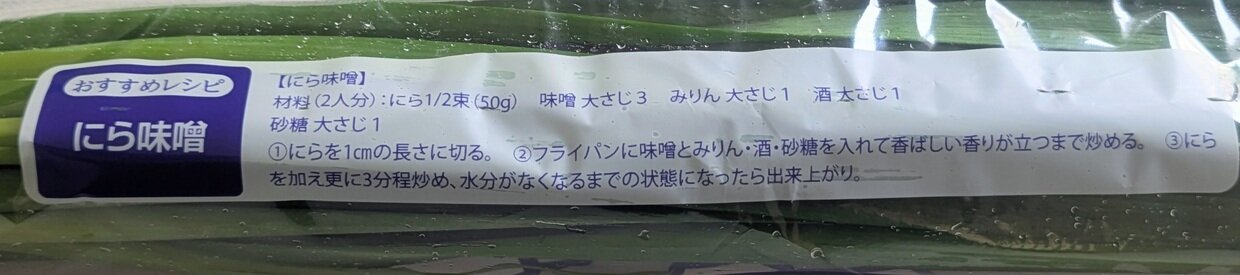 おすすめレシピ
にら味噌
【にら味噌】
材料(2人分):にら1/2束(50g) 味噌 大さじ3 みりん 大さじ1 酒 大さじ1
砂糖 大さじ1
①にらを1cmの長さに切る。 ②フライパンに味噌とみりん・酒・砂糖を入れて香ばしい香りが立つまで炒める。 ③にら
を加え更に3分程炒め、水分がなくなるまでの状態になったら出来上がり。